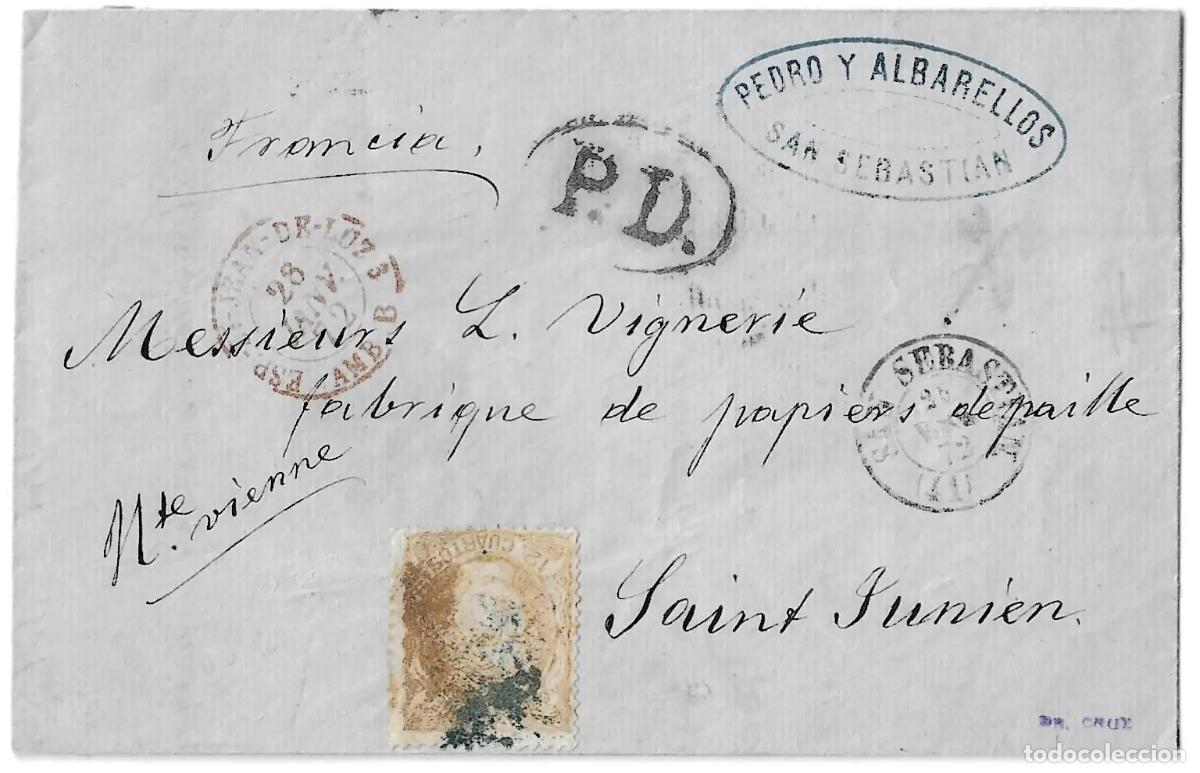 PEDRO Y ALBARELLOS
SAN SEBASTIAN
Francia,
P.D.
JEAN-DE-LUZ 5
28
JANV.
72
ESP. AMB. B
Messieurs L. Vignerie
fabrique de papiers de paille
SAN SEBASTIAN
72
(41)
Hte. vienne
12 CUARTOS
Saint Junien.
DR. CRUZ
todocoleccion